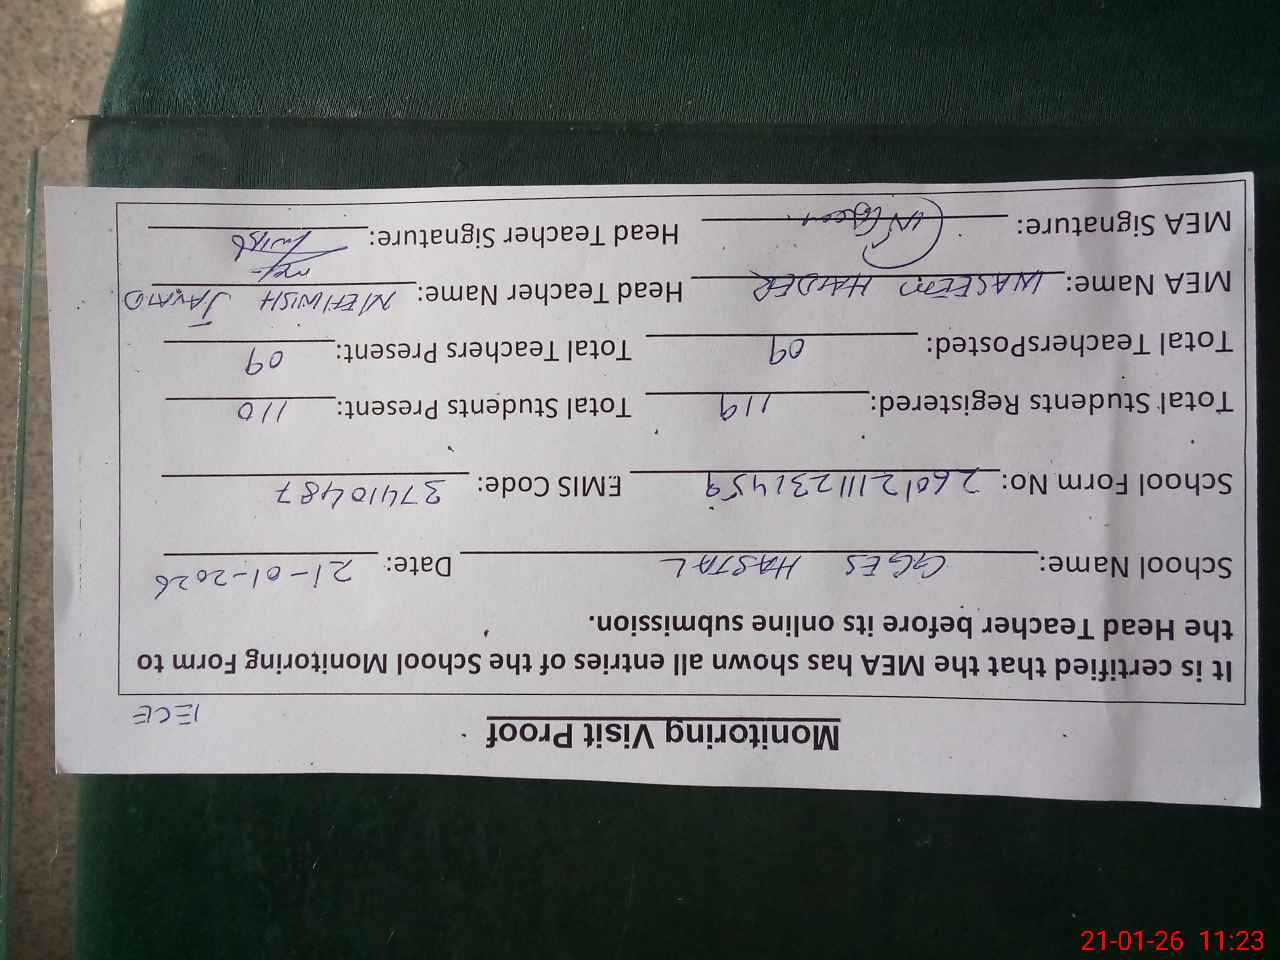 Monitoring Visit Proof
ECE
It is certified that the MEA has shown all entries of the School Monitoring Form to
the Head Teacher before its online submission.
School Name: GGES HASTAL Date: 21-01-2026
School Form No: 26012111231459 EMIS Code: 37410487
Total Students Registered: 119 Total Students Present: 110
Total TeachersPosted: 09 Total Teachers Present: 09
MEA Name: WASEEM HAIDER Head Teacher Name: MEHWISH JAVAID
MEA Signature: Head Teacher Signature:
21-01-26 11:23